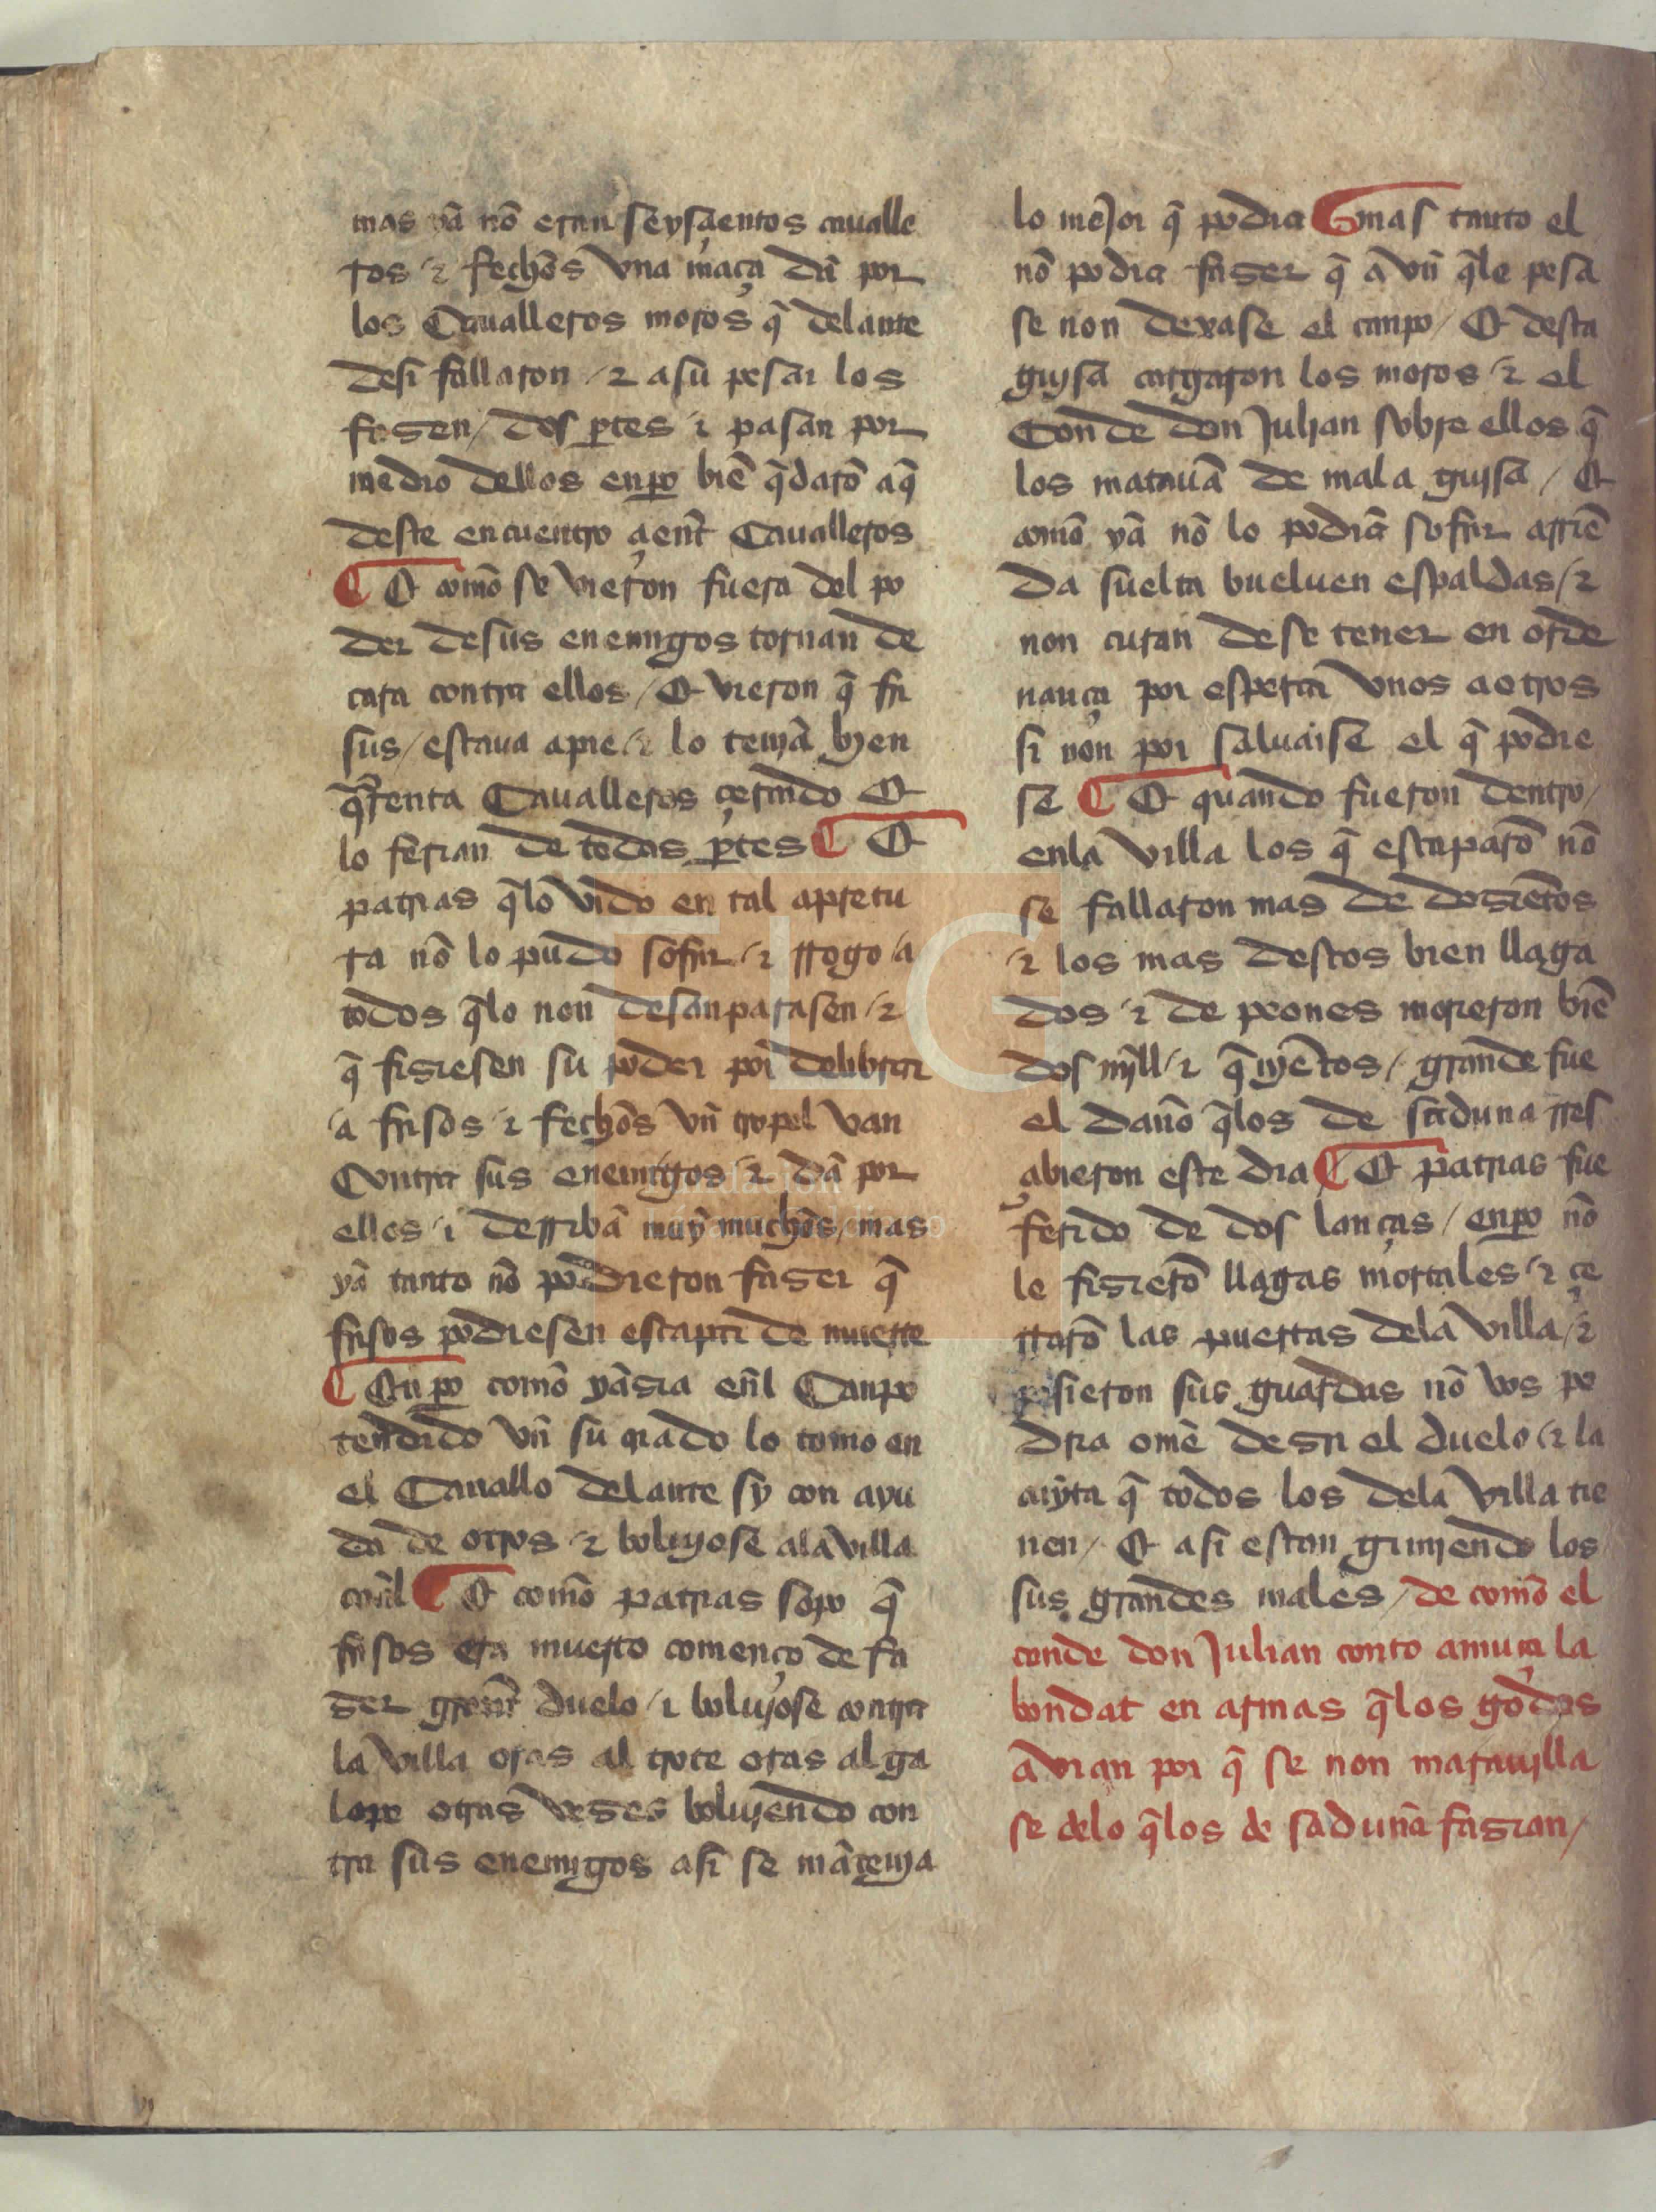 mas yã nõ eran seysçientos caualle
ros / ⁊ fechõs vna maça dã por
los Caualleros moros q̃ delante
desi fallaron / ⁊ a su pesar los
fasen / dos ꝑtes ⁊ pasan por
medio dellos enꝑo biẽ q̃darõ aq̃
deste encuentro çient̃ Caualleros
¶ Et comõ se vieron fuera del po
der desus enemigos tornan de
cara contra ellos / Et vieron q̃ fri
sus / estaua apie / ⁊ lo tenjã bjen
q̃renta Caualleros çercado Et
lo ferian de todas ꝑtes ¶ Et
patras q̃lo vido en tal apretu
ra nõ lo pudo sofrir / ⁊ rrogo a
todos q̃lo non desanparasen / ⁊
q̃ fisiesen su poder por delibrar
a frisos / ⁊ fechõs vñ tropel van
Contra sus enemigos / ⁊ dã por
ellos / ⁊ derribã muy muchõs / mas
yã tanto nõ podieron faser q̃
frisos podiesen escapar de muerte
¶ Enꝑo comõ yãsia eñl Canpo
tendido vñ su criado lo tomo en
el Cauallo delante sy con ayu
da de otros / ⁊ boluyose ala villa
coñl ¶ Et comõ patras sopo q̃
frisos era muerto començo de fa
ser grant̃ duelo / ⁊ boluyose contra
la villa oras al trote oras al ga
lope otras veses boluyendo con
tra sus enemjgos asi se mãtenja
lo meJor q̃ podia ¶ mas tanto el
nõ podia faser q̃ avñ q̃le pesa
se non dexase el canpo / Et desta
guysa cargaron los moros / ⁊ el
Conde don Julian sobre ellos q̃
los matauã de mala guysa / Et
comõ yã nõ lo podiã sofrir arriẽ
da suelta bueluen espaldas / ⁊
non curan dese tener en orde
nança por esperar vnos aotros
si non por saluarse el q̃ podie
se ¶ Et quando fueron dentro /
enla villa los q̃ escaparõ nõ
se fallaron mas de dosietos
⁊ los mas destos bien llaga
dos / ⁊ de peones morieron biẽ
dos mjll / ⁊ q̃njẽtos / grande fue
el danõ q̃los de saduna rres
çabieron este dia ¶ Et patras fue
ferido de dos lanças / enꝑo nõ
le fisierõ llagas mortales / ⁊ çe
rrarõ las puertas dela villa / ⁊
posieron sus guardas nõ vos po
dria omẽ desir el duelo / ⁊ la
cuyta q̃ todos los dela villa tie
nen / Et asi estan gimjendo los
sus grandes males / de comõ el
conde don Julian conto amuça la
bondat en armas q̃los godos
avian por q̃ se non marauilla
se delo q̃los de saduna fasian /